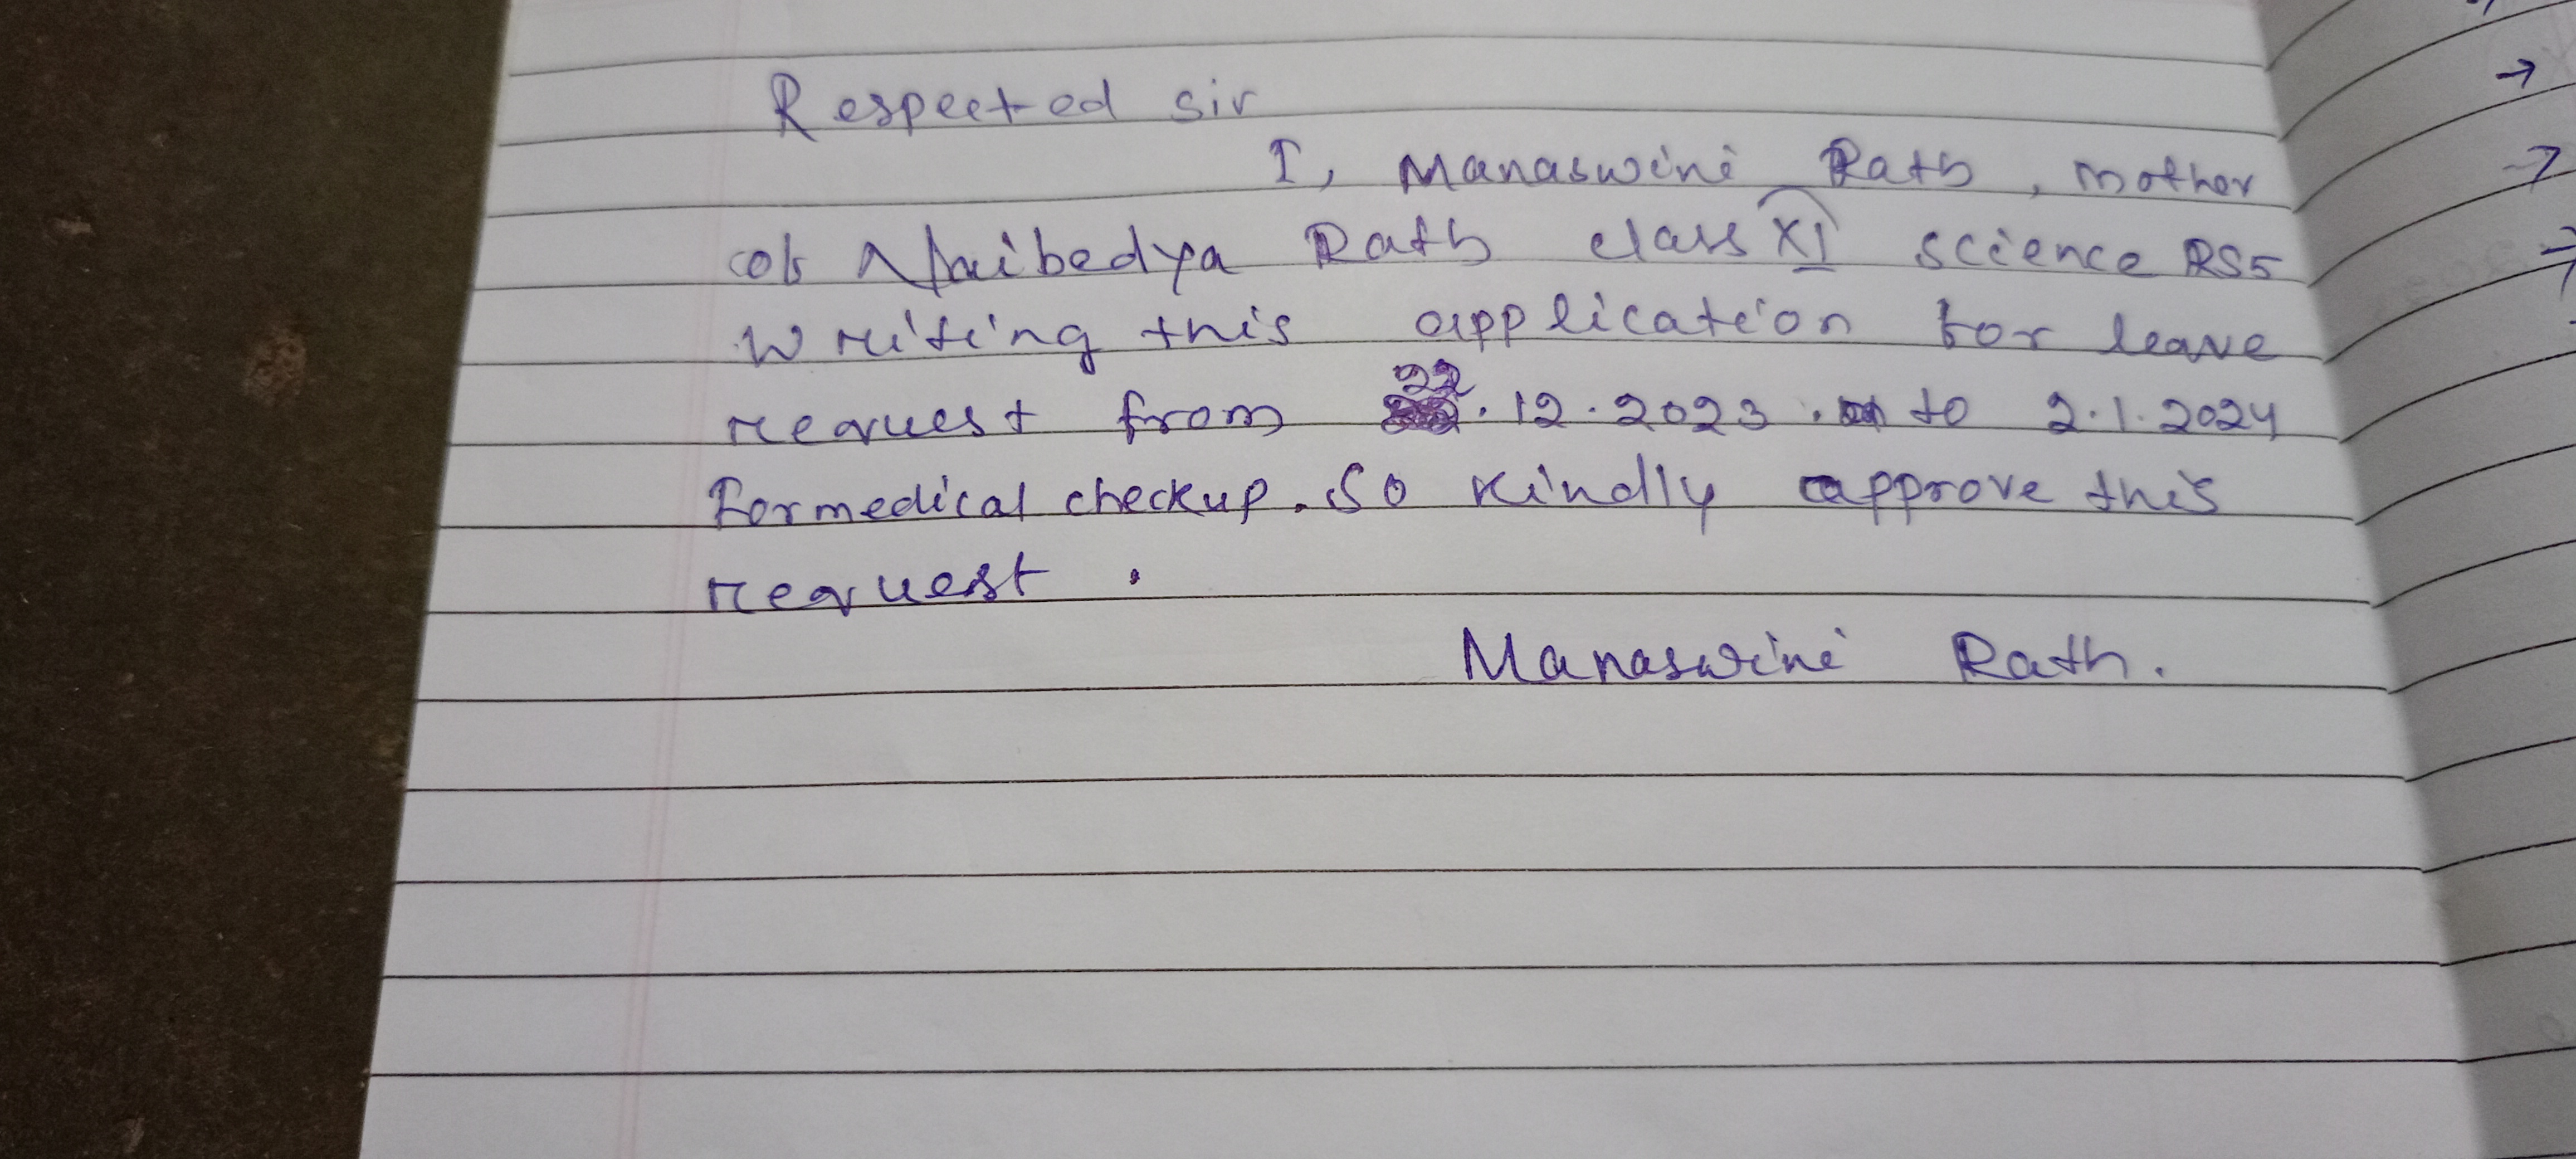 Respected sir
I, Manaswini Rath, mother
of Naibedya Rath class XI science RS5
writing this application for leave
request from 22.12.2023. to 2.1.2024
For medical checkup. So kindly approve this
request.
Manaswini Rath.